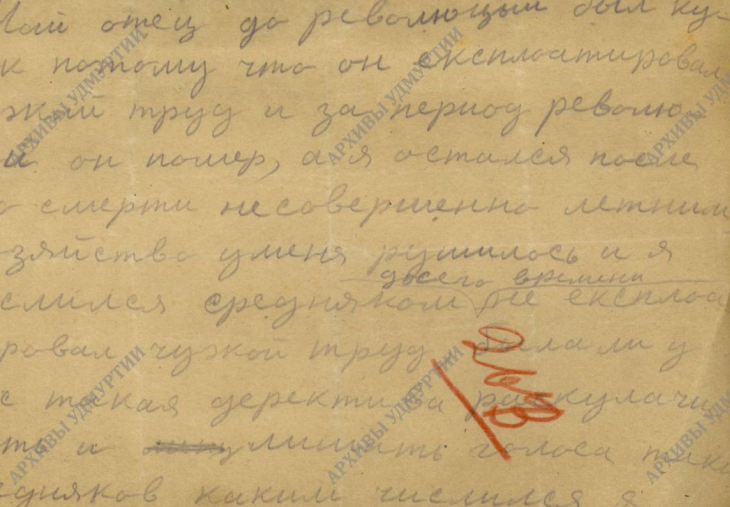 Мой отец до революции был ку-
к потому что он експлоатировал
жой труд и за период револю
и он помер, а я остался после
о смерти несовершенно летним
зяйство уменя рушилось и я
досего времени
слился средняком не експлоа
ровал чужой труд былали у
с такая деректива раскулачи
ть и лишать голоса таки
едняков каким числился я
АРХИВЫ УДМУРТИИ